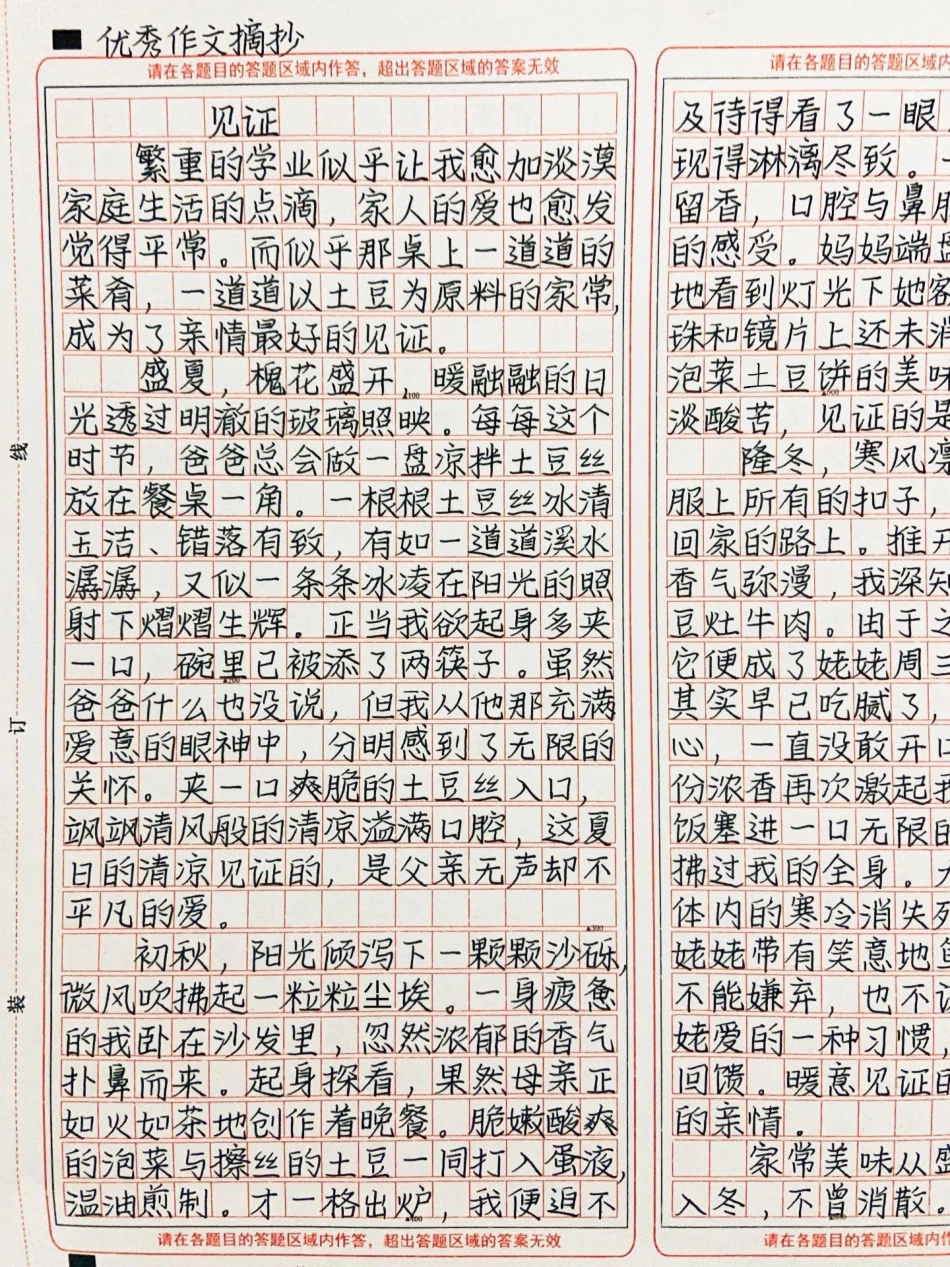 优秀作文摘抄
请在各题目的答题区域内作答，超出答题区域的答案无效
见证
繁重的学业似乎让我愈加淡漠
家庭生活的点滴，家人的爱也愈发
觉得平常。而似乎那桌上一道道的
菜肴，一道道以土豆为原料的家常，
成为了亲情最好的见证。
盛夏，槐花盛开，暖融融的日
光透过明澈的玻璃照映。每每这个
时节，爸爸总会做一盘凉拌土豆丝
放在餐桌一角。一根根土豆丝冰清
玉洁、错落有致，有如一道道溪水
潺潺，又似一条条冰凌在阳光的照
射下熠熠生辉。正当我欲起身多夹
一口，碗里已被添了两筷子。虽然
爸爸什么也没说，但我从他那充满
爱意的眼神中，分明感到了无限的
关怀。夹一口爽脆的土豆丝入口，
飒飒清风般的清凉溢满口腔，这夏
日的清凉见证的，是父亲无声却不
平凡的爱。
初秋，阳光倾泻下一颗颗沙砾，
微风吹拂起一粒粒尘埃。一身疲惫
的我卧在沙发里，忽然浓郁的香气
扑鼻而来。起身探看，果然母亲正
如火如荼地创作着晚餐。脆嫩酸爽
的泡菜与擦丝的土豆一同打入蛋液，
温油煎制。才一格出炉，我便迫不
请在各题目的答题区域内作答，超出答题区域的答案无效
请在各题目的答题区域内
及待得看了一眼
现得淋漓尽致。
留香，口腔与鼻
的感受。妈妈端
地看到灯光下她
珠和镜片上还未
泡菜土豆饼的美味
淡酸苦，见证的是
隆冬，寒风凛
服上所有的扣子，
回家的路上。推开
香气弥漫，我深知
豆灶牛肉。由于
它便成了姥姥周三
其实早已吃腻了，
心，一直没敢开口
份浓香再次激起
饭塞进一口无限的
拂过我的全身。
体内的寒冷消失
姥姥带有笑意地
不能嫌弃，也不
姥爱的一种习惯，
回馈。暖意见证的
的亲情。
家常美味从盛
入冬，不曾消散。
请在各题目的答题区域内
线
订
装